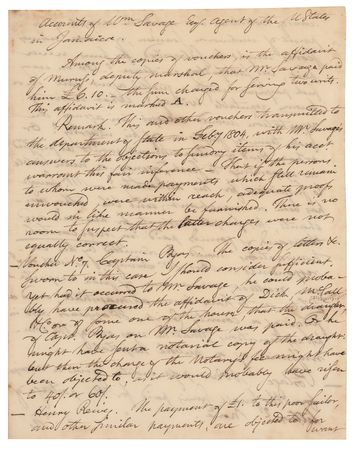 Accounts of Wm Savage Esq. Agent of the U States
in Jamaica.
Among the copies of vouchers, is the affidavit
of Murray, deputy marshal, that Mr Savage paid
him £6.10. The sum charged for serving two writs.
This affidavit is marked A.
Remark. This and other vouchers transmitted to
the department of State in Feby 1804, with Mr Savage's
answers to the objections to sundry items of his acct
warrant this fair inference — That if the persons
to whom were made payments which still remain
unvouched were within reach, adequate proofs
would in like manner be furnished. There is no
room to suspect that the latter charges were not
equally correct.
Voucher No 7. Captain The copies of letters &c.
sworn to in this case I should consider sufficient.
yet had it occurred to Mr Savage, he could proba-
bly have procured the affidavit of Dick, McCall
& Co or of some one of the house, that the draught
of Capt. on Mr Savage was paid. Or he
might have sent a notarial copy of the draught:
but then the charge of the Notary's fee might have
been objected to, as it would probably have risen
to 40/. or 60/.
— Henry The payment of £1. to this poor sailor,
and other similar payments, are objected to for
want